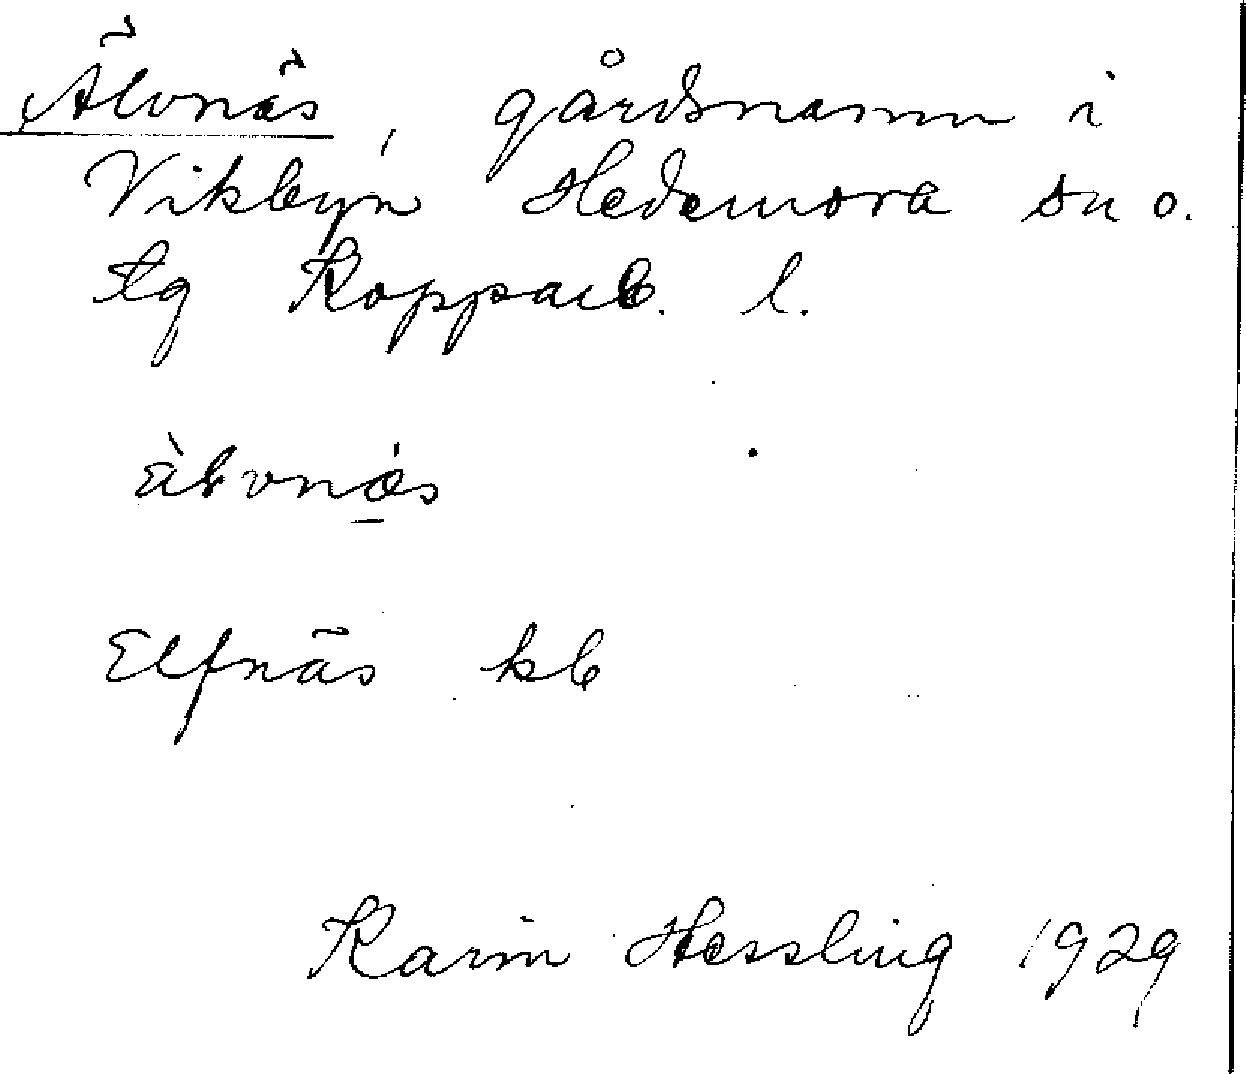 Älvnäs, gårdsnamn i
Vikbyn Hedemora sn o.
tg Kopparb. l.
Elfnäs kb
Karin Hessling 1929